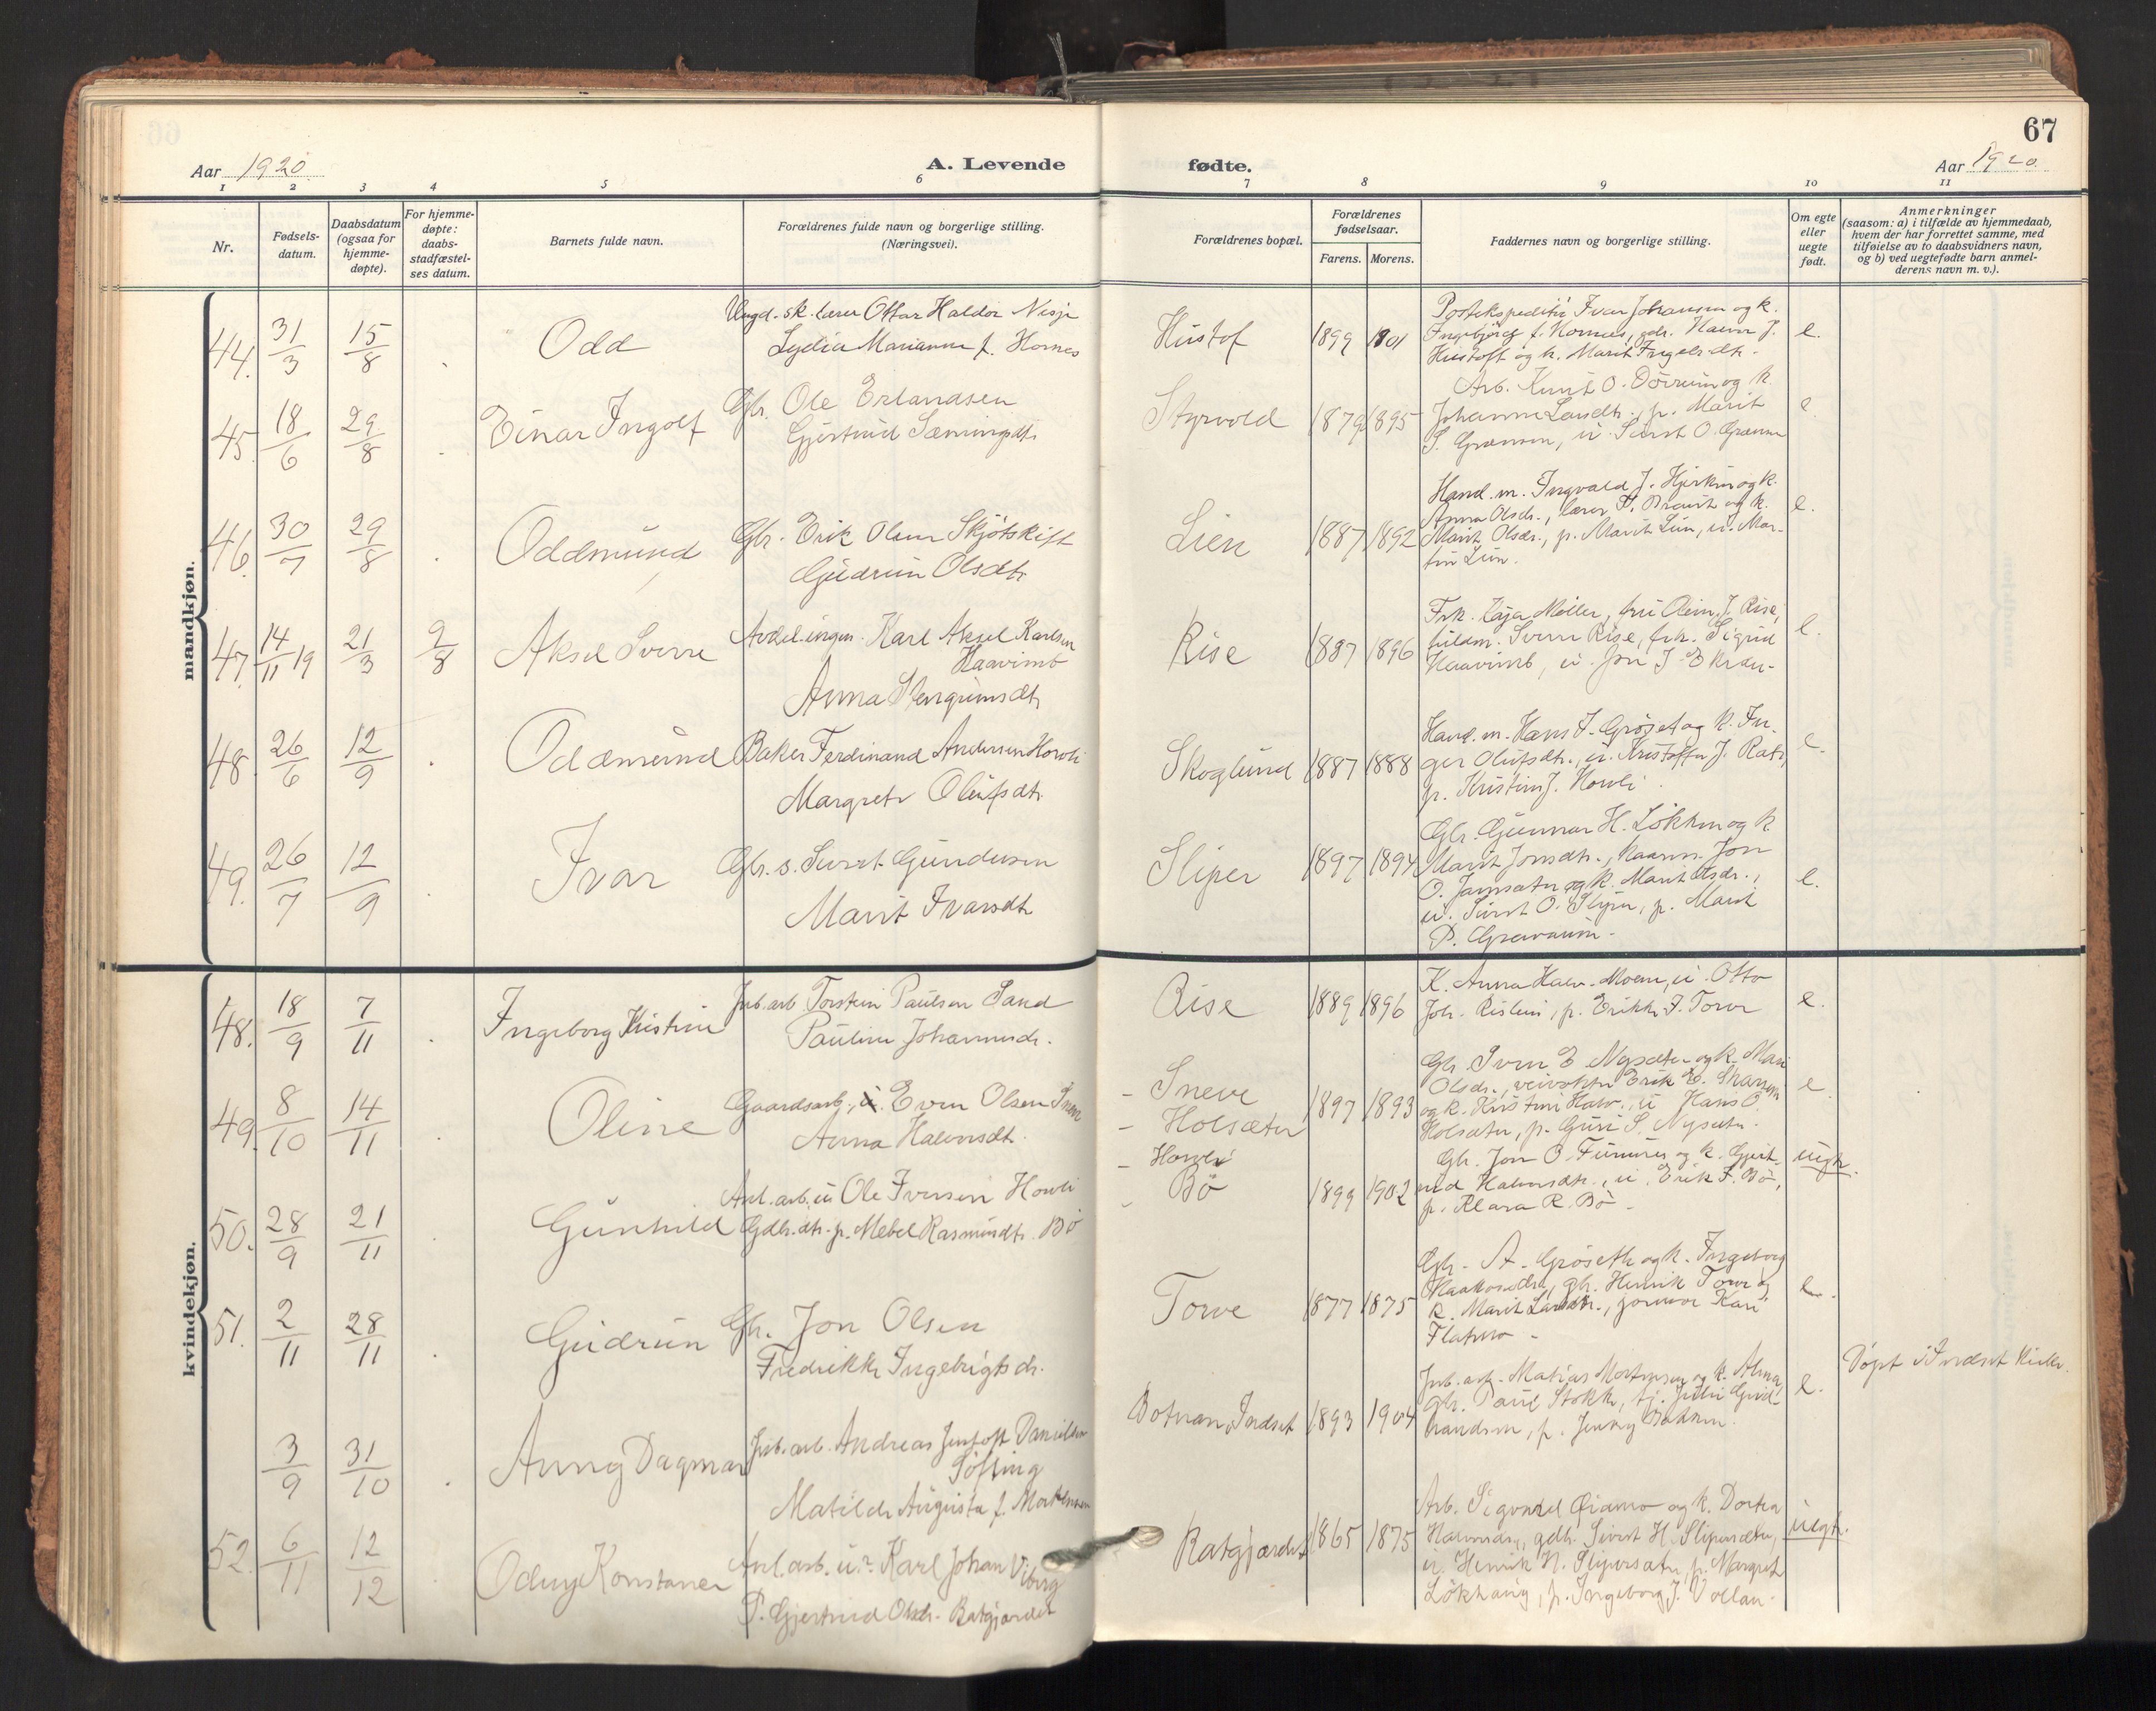 67
Aar 1920
A. Levende
fødte.
Aar 1920
1 2 3 4 5 6 7 8 9 10 11
Nr.
Fødsels-
datum.
Daabsdatum
(ogsaa for
hjemme-
døpte).
For hjemme-
døpte:
daabs-
stadfæstel-
ses datum.
Barnets fulde navn.
Forældrenes fulde navn og borgerlige stilling.
(Næringsvei).
Forældrenes bopæl.
Forældrenes
fødselsaar.
Farens. Morens.
Faddernes navn og borgerlige stilling.
Om egte
eller
uegte
født.
Anmerkninger
(saasom: a) i tilfælde av hjemmedaab,
hvem der har forrettet samme, med
tilføielse av to daabsvidners navn,
og b) ved uegtefødte barn anmel-
derens navn m. v.).
mandkjøn.
44. 31/3 15/8 Odd
Ungd. sk. lærer Ottar Haldor Nisja
Lydia Marianne f. Hornes
Hustof 1899 1901
Postekspeditör Ivar Johansen og k.
Ingebjörg f. Hornes, gdr. Halvor J.
Hustoft og k. Marit Ingelsdtr.
e.
45. 18/6 29/8 Einar Ingolf
Gbr. Ole Erlandsen
Gjertrud Sæmingsdtr.
Styrvold 1879 1895
Arb. Knut O. Dörum og k.
Johanne Larsdtr., p. Marit
S. Grannen, u. Sivert O. Grannen
e.
46. 30/7 29/8 Oddmund
Gbr. Erik Olsen Skjötskift
Gudrun Olsdtr.
Lien 1887 1892
Hand. m. Ingvald J. Hjerkin og k.
Anna Olsdr., lærer P. Bravit og k.
Marit Olsdr., p. Marit Lien, u. Mar-
tin Lien.
e.
47. 14/11 19 21/3 9/8 Aksel Sverre
Avdel. ingen. Karl Aksel Karlsen
Haavimb
Anna Stengrimsdtr.
Rise 1887 1896
Frk. Caja Möller, fru Olein J. Rise,
fuldm. Sverre Rise, frk. Sigrid
Haavimb, u. Jon J. Ekran.
e.
48. 26/6 12/9 Oddmund
Baker Ferdinand Andersen Horvli
Margrete Olufsdtr.
Skoglund 1887 1888
Hand. m. Hans F. Gröset og k. In-
ger Olufsdtr., u. Kristoffer J. Rat,
p. Kristine J. Horvli
e.
49. 26/7 12/9 Ivar
Gbr. s. Sivert Gundersen
Marit Ivarsdtr.
Sliper 1897 1894
Gbr. Gunnar H. Lökken og k.
Marit Jonsdtr., kaarm. Jon
O. Jamsæter og k. Marit Olsdr.,
u. Sivert O. Sliper, p. Marit
P. Gravaune.
e.
kvindekjøn.
48. 18/9 7/11 Ingeborg Kristine
Jnb. arb. Torstein Paulsen Sand
Pauline Johannesdr.
Rise 1889 1896
K. Anna Halv. Moen, u. Otto
Joh. Rislien, p. Erikke F. Torve
e.
49. 8/10 14/11 Oline
Gaardsarb. Even Olsen Sneve
Anna Halvorsdtr.
- Sneve
- Holsæter 1897 1893
Gbr. Iven E Nysæter og k. Mari
Olsdr., veivokter Erik E. Skarsem
og k. Kristine Halv., u. Hans O.
Holsæter, p. Guri S. Nysæter.
e
50. 28/9 21/11 Gunhild
Anl. arb. u. Ole Iversen Horvli
Gdbr. dtr. p. Mebel Rasmusdtr. Bö
- Horvli
- Bö 1899 1902
Gbr. Jon O. Furunes og k. Gjert-
rud Halvorsdtr., u. Erik F. Bö,
p. Klara R. Bö.
uegte.
51. 2/11 28/11 Gudrun
Gbr. Jon Olsen
Fredrikke Ingebrigtsdr.
Torve 1877 1875
Gbr. A. Gröseth og k. Ingeborg
Haakonsdtr., gbr. Henrik Torve og
k. Marit Larsdtr., jormor Kari
Flatmo.
e.
3/9 31/10 Anny Dagmar
Jnb. arb. Andreas Justoft Danielsen
Söfting
Matilde Augusta f. Mortensen
Botnan, Indset 1893 1904
Jnb. arb. Matias Mortensen og k. Alma,
gbr. Paul Stokke, tj. Julie Gud-
brandsen, p. Jenny Bakken.
e.
Döpt i Indset kirke.
52. 6/11 12/12 Odny Konstance
Anl. arb. u.? Karl Johan Viberg
P. Gjertrud Olsdr. Ratgjærdet
Ratgjærdet 1865 1875
Arb. Sigvald Öiamo og k. Dortea
Halvorsdr., gdb. Sivert H. Slipersæter,
u. Henrik H. Slipersæter, p. Margret
Lökhaug, p. Ingeborg J. Vollan.
uegte.